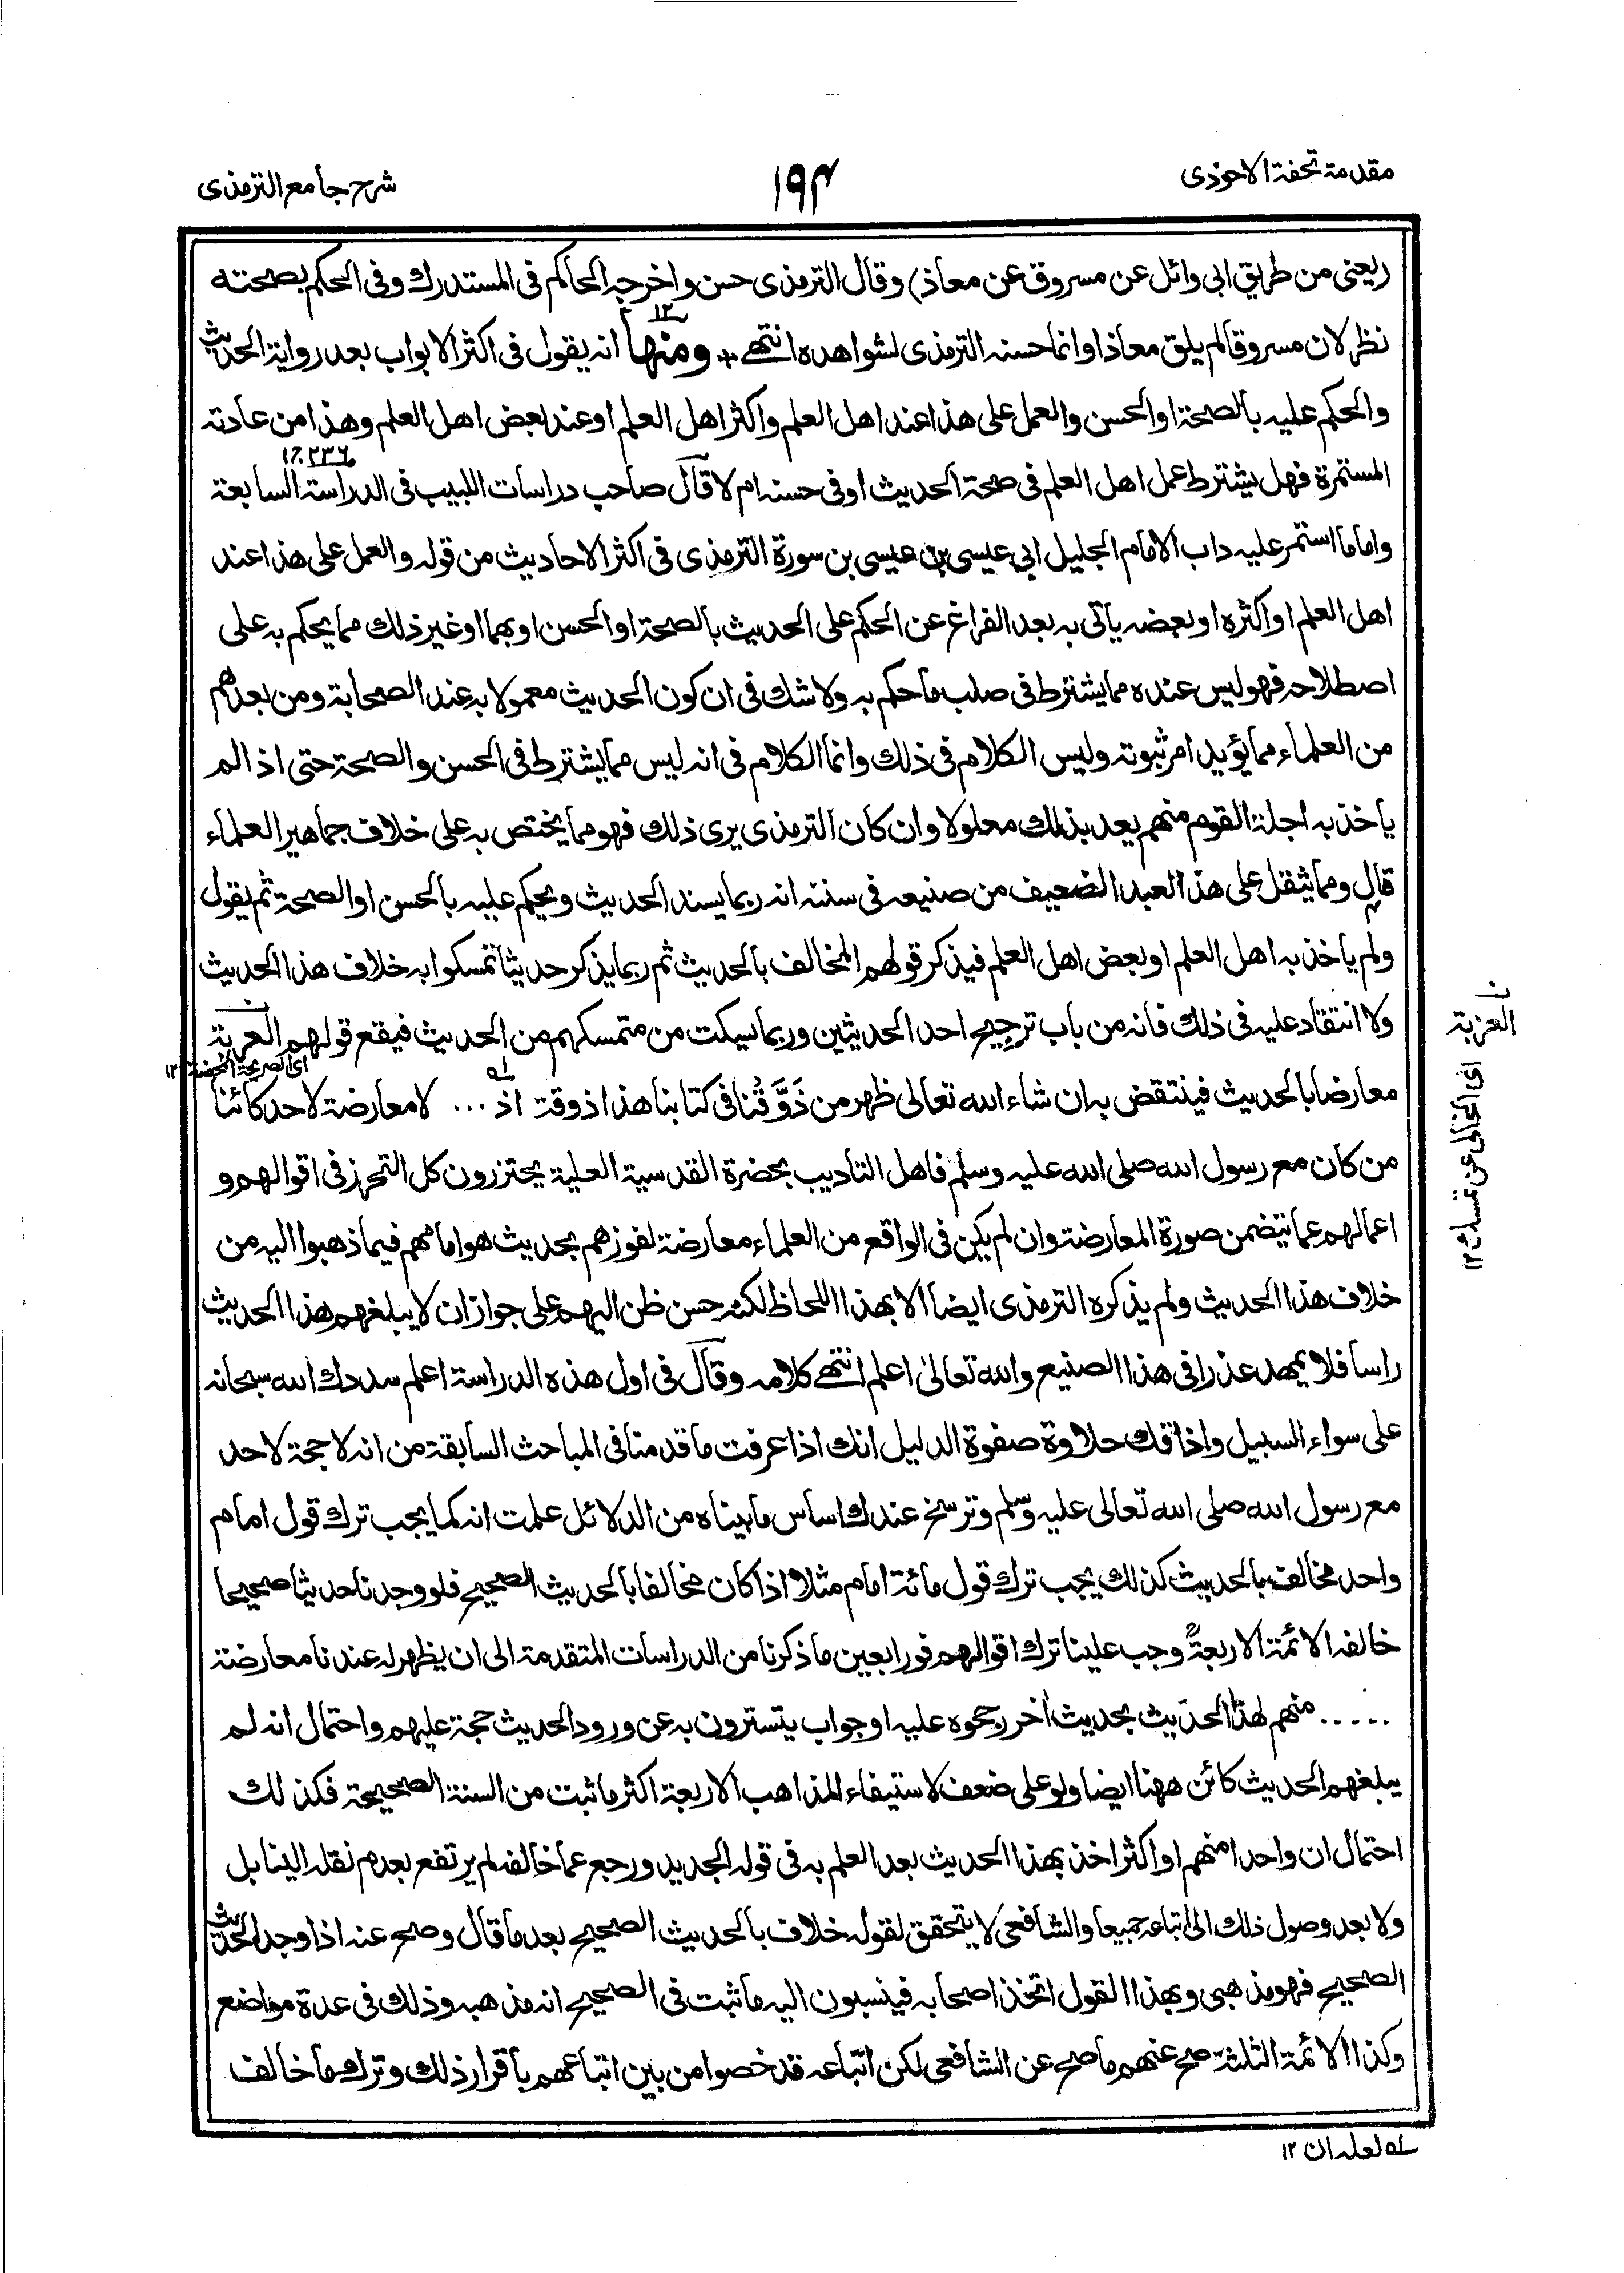 مقدمة تحفة الاحوذى
١٩٤
شرح جامع الترمذى
(يعنى من طريق ابى وائل عن مسروق عن معاذ) وقال الترمذى حسن واخرجه الحاكم فى المستدرك وفى الحكم بصحته
نظر لان مسروقا لم يلق معاذا وانما حسنه الترمذى لشواهده انتهى ومنها انه يقول فى اكثر الابواب بعد رواية الحديث
والحكم عليه بالصحة او الحسن والعمل على هذا عند اهل العلم واكثر اهل العلم او عند بعض اهل العلم وهذا من عادته
المستمرة فهل يشترط عمل اهل العلم فى صحة الحديث او فى حسنه ام لا قال صاحب دراسات اللبيب فى الدراسة السابعة
واما ما استمر عليه داب الامام الجليل ابى عيسى بن عيسى بن سورة الترمذى فى اكثر الاحاديث من قوله والعمل على هذا عند
اهل العلم او اكثره او بعضه يأتى به بعد الفراغ عن الحكم على الحديث بالصحة او الحسن او بهما او غير ذلك مما يحكم به على
اصطلاحه فهو ليس عنده مما يشترط فى صلب ما حكم به ولا شك فى ان كون الحديث معمولا به عند الصحابة ومن بعدهم
من العلماء مما يؤيد امر ثبوته وليس الكلام فى ذلك وانما الكلام فى انه ليس مما يشترط فى الحسن والصحة حتى اذا لم
يأخذ به اجلة القوم منهم يعد بذلك معلولا وان كان الترمذى يرى ذلك فهو مما يختص به على خلاف جماهير العلماء
قال ومما يثقل على هذا العبد الضعيف من صنيعه فى سننه انه ربما يسند الحديث ويحكم عليه بالحسن او الصحة ثم يقول
ولم ياخذ به اهل العلم او بعض اهل العلم فيذكر قولهم المخالف بالحديث ثم ربما يذكر حديثا تمسكوا به خلاف هذا الحديث
ولا انتقاد عليه فى ذلك فانه من باب ترجيح احد الحديثين وربما يسكت من متمسكهم من الحديث فيقع قولهم العرية
اى الصريحة المحضة ١٢
معارضا بالحديث فينتقض به ان شاء الله تعالى ظهر من ذَوَّقْنا فى كتابنا هذا ذوقه اذ ... لا معارضة لاحد كائنا
من كان مع رسول الله صلى الله عليه وسلم فاهل التاديب بحضرة القدسية العلية يحتزرون كل التحرز فى اقوالهم و
اعمالهم عما يتضمن صورة المعارضة وان لم يكن فى الواقع من العلماء معارضة لفوزهم بحديث هو امامهم فيما ذهبوا اليه من
خلاف هذا الحديث ولم يذكره الترمذى ايضا الا بهذا اللحاظ لكنه حسن ظن اليهم على جواز ان لا يبلغهم هذا الحديث
راسا فلا يمهد عذرا فى هذا الصنيع والله تعالى اعلم انتهى كلامه وقال فى اول هذه الدراسة اعلم سددك الله سبحانه
على سواء السبيل واذاقك حلاوة صفوة الدليل انك اذا عرفت ما قدمنا فى المباحث السابقة من انه لا حجة لاحد
مع رسول الله صلى الله تعالى عليه وسلم وترسخ عندك اساس ما بيناه من الدلائل علمت انه كما يجب ترك قول امام
واحد مخالف بالحديث كذلك يجب ترك قول مائة امام مثلا اذا كان مخالفا بالحديث الصحيح فلو وجدنا حديثا صحيحا
خالفه الائمة الاربعة وجب علينا ترك اقوالهم فورا بعين ما ذكرنا من الدراسات المتقدمة الى ان يظهر له عندنا معارضة
..... منهم لهذا الحديث بحديث أخر رجحوه عليه او جواب يتسترون به عن ورود الحديث حجة عليهم واحتمال انه لم
يبلغهم الحديث كائن ههنا ايضا ولو على ضعف لاستيفاء المذاهب الاربعة اكثر ما ثبت من السنة الصحيحة فكذلك
احتمال ان واحدا منهم او اكثر اخذ بهذا الحديث بعد العلم به فى قوله الجديد ورجع عما خالفه لم يرتفع بعدم نقله الينا بل
ولا بعد وصول ذلك الى اتباعه جميعا والشافعى لا يتحقق لقوله خلاف بالحديث الصحيح بعد ما قال وصح عنه اذا وجد الحديث
الصحيح فهو مذهبى وبهذا القول اتخذ اصحابه فينسبون اليه ما ثبت فى الصحيح انه مذهبه وذلك فى عدة مواضع
وكذا الائمة الثلثة صح عنهم ما صح عن الشافعى لكن اتباعه قد خصوا من بين اتباعهم باقرار ذلك وترك ما خالف
لعله ان ١٢
العزبة
اى الخالى عن تمسك ١٢